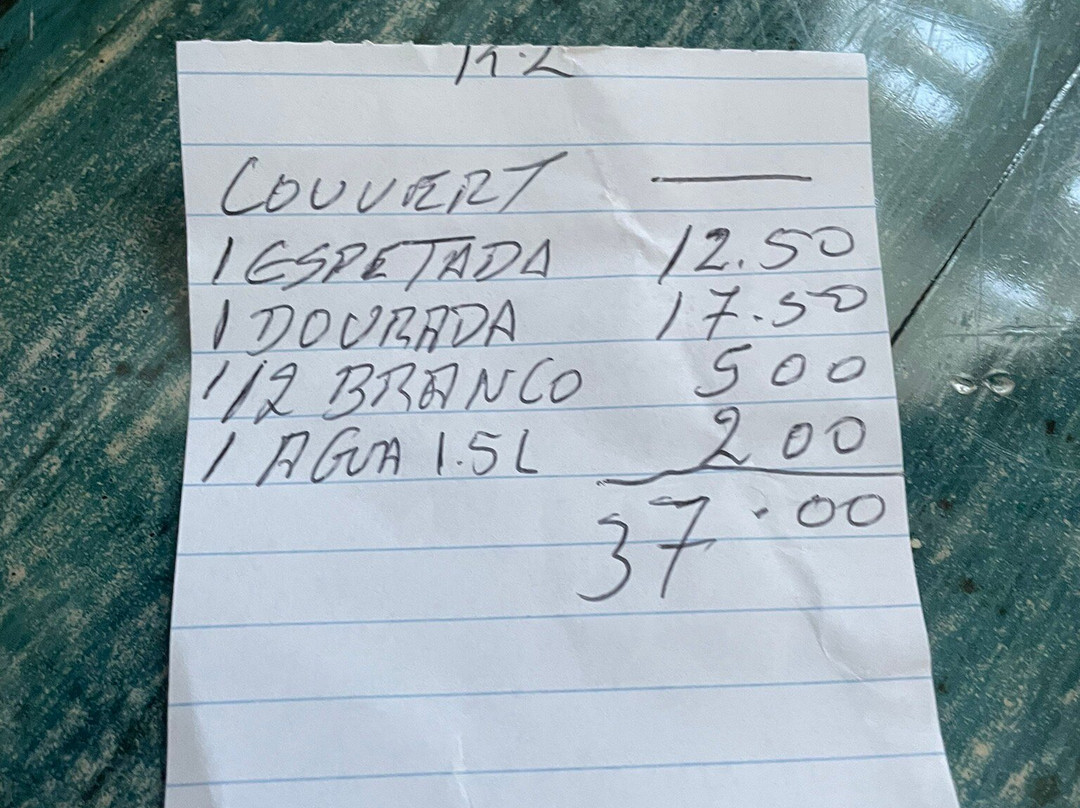 COUVERT ———
1 ESPETADA 12.50
1 DOURADA 17.50
1/2 BRANCO 5 00
1 AGUA 1.5L 2 00
37.00